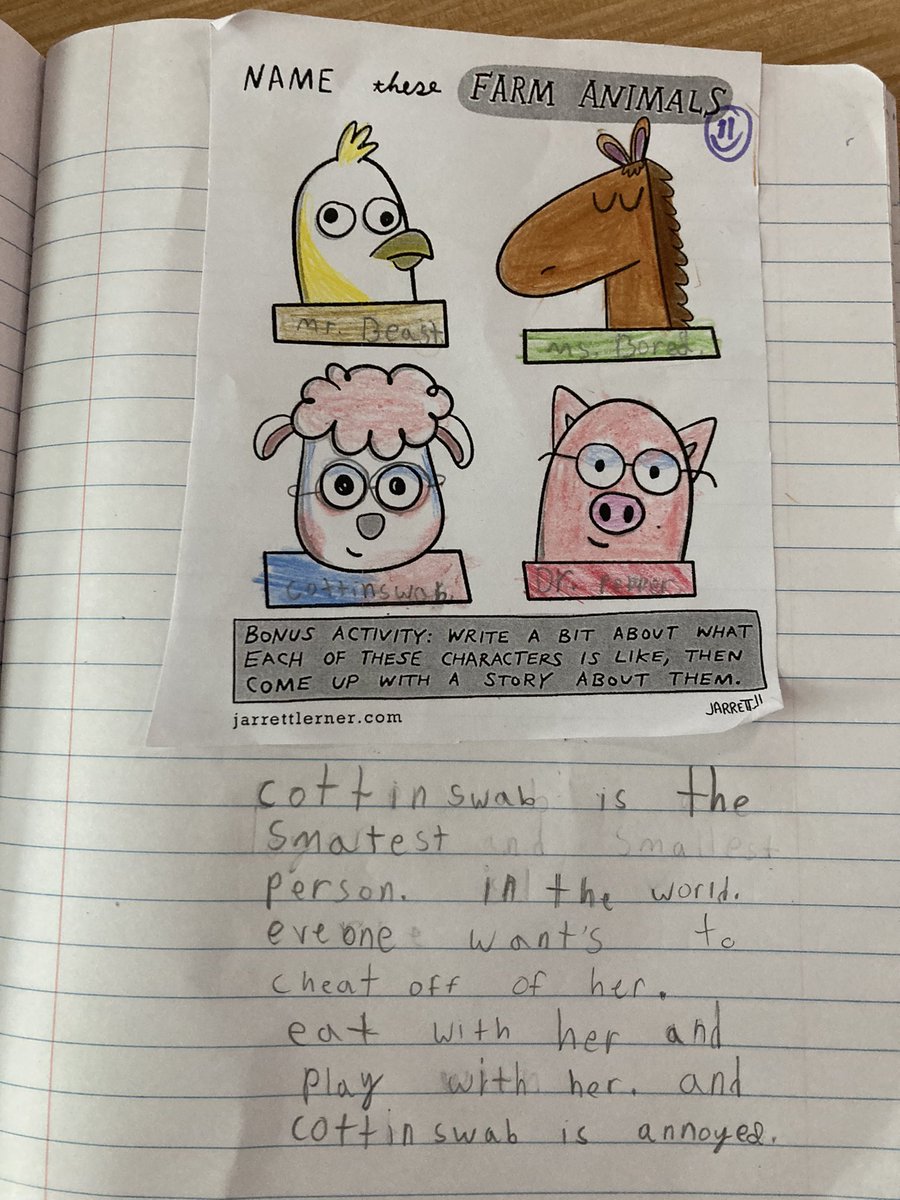 NAME these FARM ANIMALS
Mr. Beast
Ms. Bored.
cottinswab.
DR. Pepper
BONUS ACTIVITY: WRITE A BIT ABOUT WHAT
EACH OF THESE CHARACTERS IS LIKE, THEN
COME UP WITH A STORY ABOUT THEM.
JARRETT
jarrettlerner.com
cottin swab is the
Smatest and smallest
person. in the world.
eveone want's to
cheat off of her.
eat with her and
play with her. and
cottin swab is annoyed.